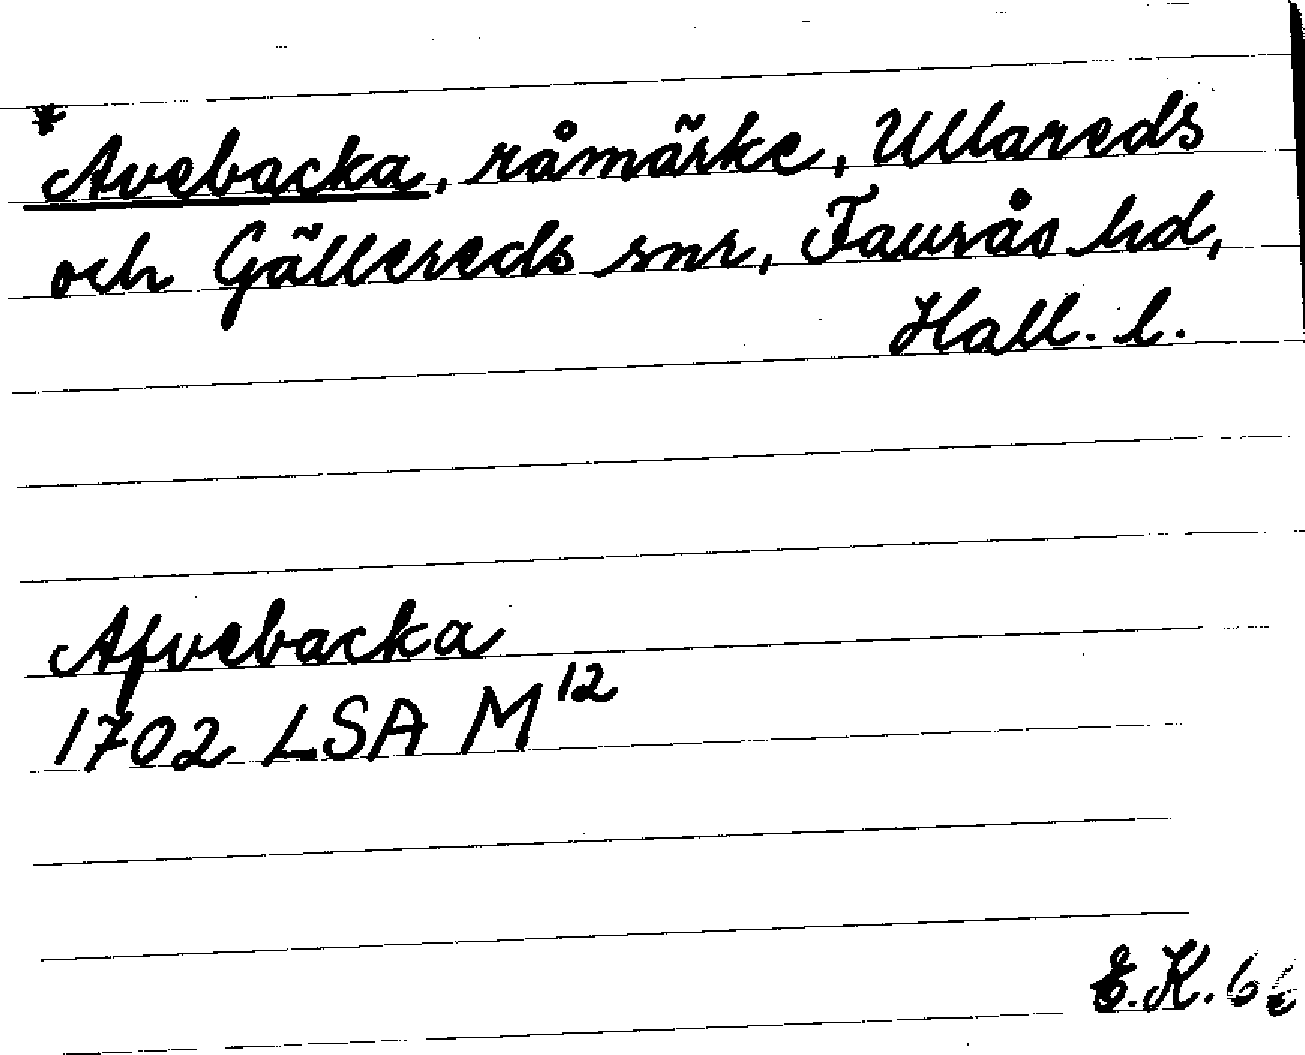 *Avebacka, råmärke, Ullareds
och Gällereds snr, Faurås hd,
Hall. l.
Afvebacka
1702 LSA M¹²
E.K. 66